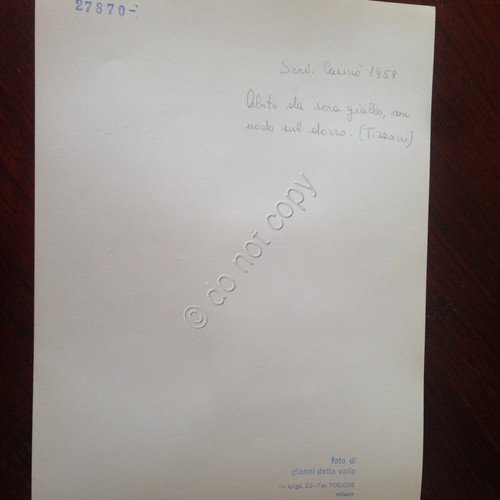 27870-
Serv. Casinò 1958
Abito da sera giallo, con
nodo sul dorso - (Tizzoni)
© do not copy
foto di
gianni della valle
via spiga, 22 - Tel. 700.039
milano